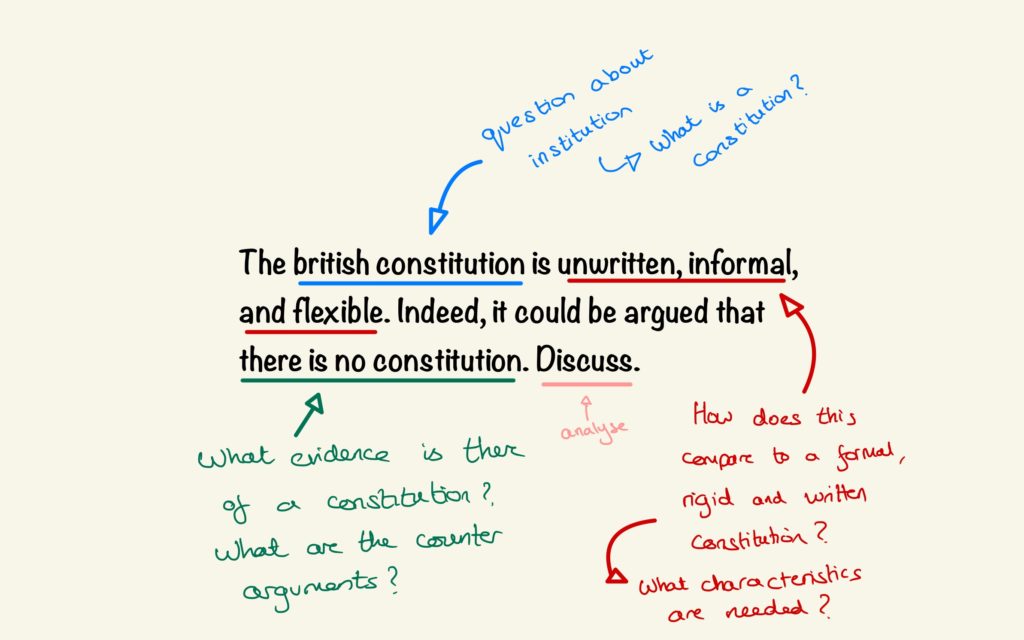 question about
institution
What is a
constitution?
The british constitution is unwritten, informal,
and flexible. Indeed, it could be argued that
there is no constitution. Discuss.
analyse
What evidence is ther
of a constitution?
What are the counter
arguments?
How does this
compare to a formal,
rigid and written
constitution?
What characteristics
are needed?